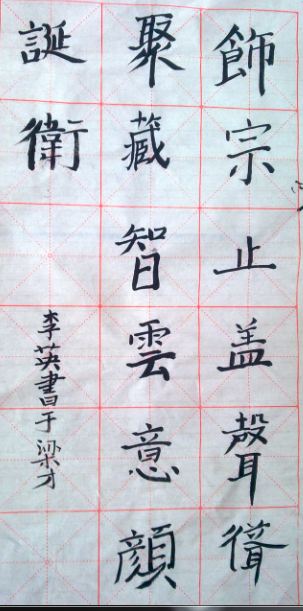 飾宗止盖聲
聚藏智雲意顔
誕衛
李英書于梁才